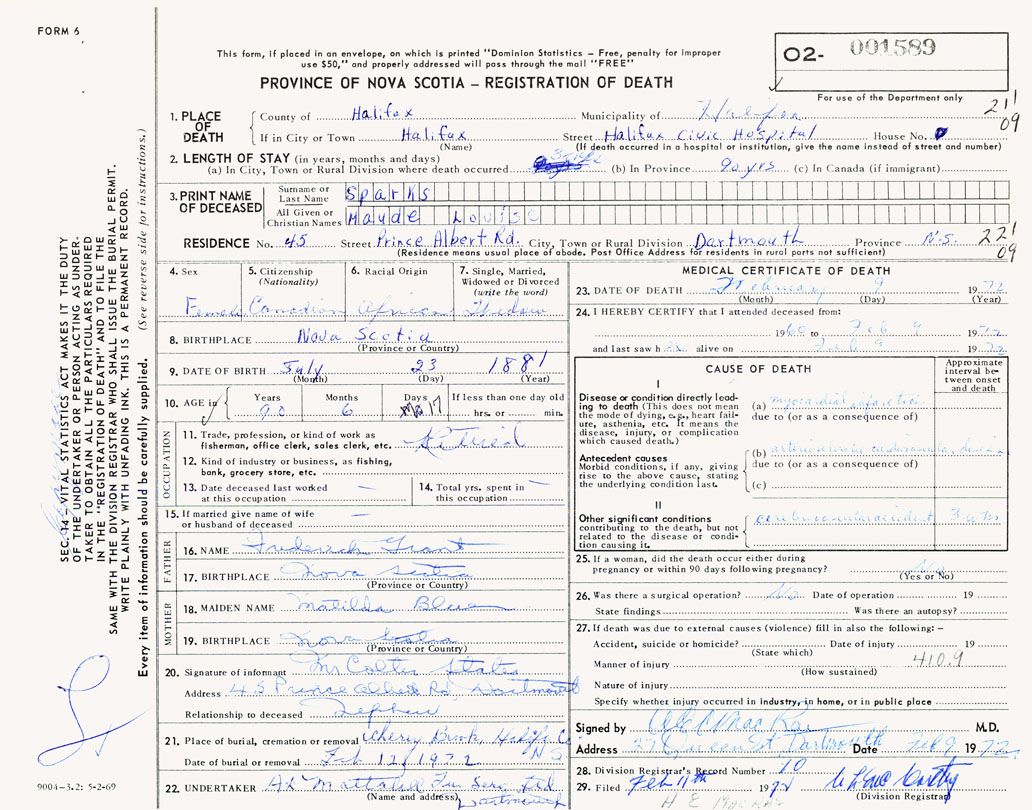 FORM 6
This form, if placed in an envelope, on which is printed "Dominion Statistics – Free, penalty for improper
use $50," and properly addressed will pass through the mail "FREE"
PROVINCE OF NOVA SCOTIA – REGISTRATION OF DEATH
02- 001589
For use of the Department only
211
09
1. PLACE OF DEATH
County of Halifax Municipality of Halifax
If in City or Town Halifax Street Halifax Civic Hospital House No.
(Name) (If death occurred in a hospital or institution, give the name instead of street and number)
2. LENGTH OF STAY (in years, months and days)
(a) In City, Town or Rural Division where death occurred (b) In Province 90 yrs (c) In Canada (if immigrant)
3. PRINT NAME OF DECEASED
Surname or Last Name Sparks
All Given or Christian Names Mayde Louise
RESIDENCE No. 45 Street Prince Albert Rd. City, Town or Rural Division Dartmouth Province N.S.
(Residence means usual place of abode. Post Office Address for residents in rural parts not sufficient)
221
09
4. Sex 5. Citizenship 6. Racial Origin 7. Single, Married,
(Nationality) Widowed or Divorced
(write the word)
Female Canadian African Widow
8. BIRTHPLACE Nova Scotia
(Province or Country)
9. DATE OF BIRTH July 23 1881
(Month) (Day) (Year)
10. AGE in Years Months Days If less than one day old
90 6 17 hrs. or min.
OCCUPATION
11. Trade, profession, or kind of work as
fisherman, office clerk, sales clerk, etc. Retired
12. Kind of industry or business, as fishing,
bank, grocery store, etc.
13. Date deceased last worked —
at this occupation
14. Total yrs. spent in —
this occupation
15. If married give name of wife —
or husband of deceased
FATHER
16. NAME Frederick Grant
17. BIRTHPLACE Nova Scotia
(Province or Country)
MOTHER
18. MAIDEN NAME Matilda Blue
19. BIRTHPLACE Nova Scotia
(Province or Country)
20. Signature of informant Mr Colter States
Address 45 Prince Albert Rd. Dartmouth
Relationship to deceased Nephew
21. Place of burial, cremation or removal Cherry Brook, Halifx Co
N S
Date of burial or removal Feb 12/1972
22. UNDERTAKER A L Mattatall Fun Serv Ltd
(Name and address) Dartmouth
MEDICAL CERTIFICATE OF DEATH
23. DATE OF DEATH February 9 1972
(Month) (Day) (Year)
24. I HEREBY CERTIFY that I attended deceased from:
1960 to Feb 9 1972
and last saw her alive on Feb 9 1972
CAUSE OF DEATH
Approximate interval between onset and death
I
Disease or condition directly leading to death (This does not mean the mode of dying, e.g., heart failure, asthenia, etc. It means the disease, injury, or complication which caused death.)
(a) myocardial infarction
due to (or as a consequence of)
Antecedent causes
Morbid conditions, if any, giving rise to the above cause, stating the underlying condition last.
(b) arteriosclerotic cardiovascular disease
due to (or as a consequence of)
(c)
II
Other significant conditions
contributing to the death, but not related to the disease or condition causing it.
25. If a woman, did the death occur either during
pregnancy or within 90 days following pregnancy? No
(Yes or No)
26. Was there a surgical operation? No Date of operation 19
State findings Was there an autopsy?
27. If death was due to external causes (violence) fill in also the following: –
Accident, suicide or homicide? Date of injury 19
(State which)
Manner of injury 410.9
(How sustained)
Nature of injury
Specify whether injury occurred in industry, in home, or in public place
Signed by M.D.
Address 27 Queen St Dartmouth Date Feb 9 1972
28. Division Registrar's Record Number 10
29. Filed Feb 11th 1972
(Division Registrar)
SEC. 14 – VITAL STATISTICS ACT MAKES IT THE DUTY
OF THE UNDERTAKER OR PERSON ACTING AS UNDER-
TAKER TO OBTAIN ALL THE PARTICULARS REQUIRED
IN THE "REGISTRATION OF DEATH" AND TO FILE THE
SAME WITH THE DIVISION REGISTRAR WHO SHALL ISSUE THE BURIAL PERMIT.
WRITE PLAINLY WITH UNFADING INK. THIS IS A PERMANENT RECORD.
Every item of information should be carefully supplied. (See reverse side for instructions.)
9004-3.2: 5-2-69